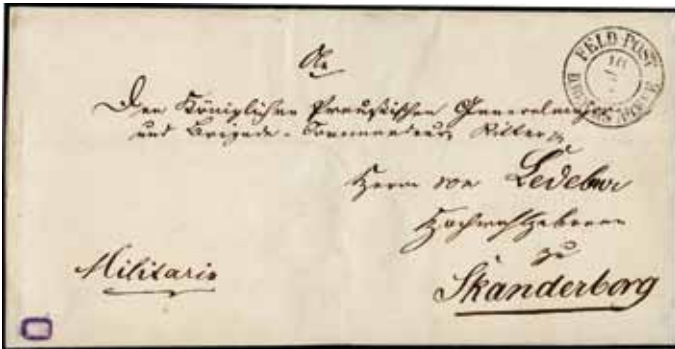 An
den Königlichen Preußischen Generalmajor
und Brigade-Commandeur, Ritter p.
Herrn von Ledebur
Hochwohlgeboren
zu
Skanderborg
Militaria
FELD-POST
10